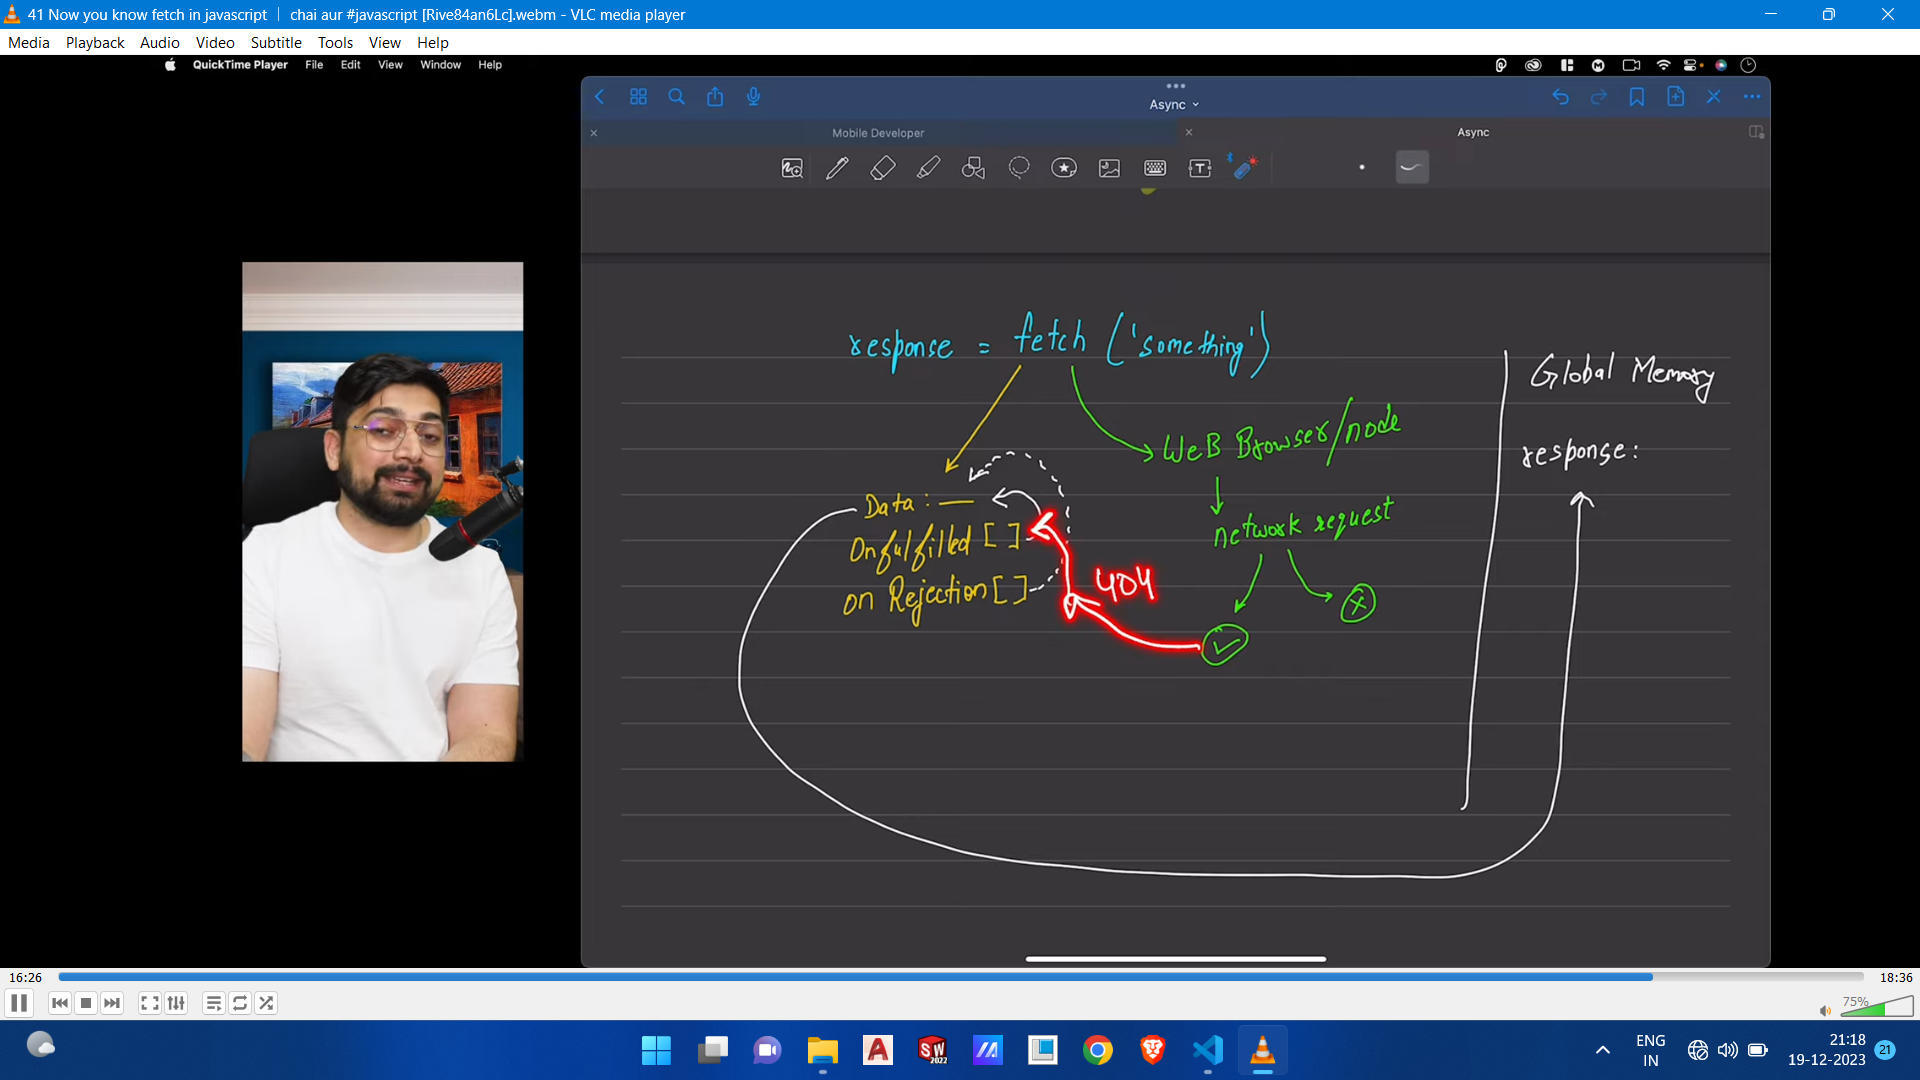 41 Now you know fetch in javascript ｜ chai aur #javascript [Rive84an6Lc].webm - VLC media player
Media Playback Audio Video Subtitle Tools View Help
QuickTime Player File Edit View Window Help
Async
Mobile Developer
Async
response = fetch ('something')
Global Memory
WeB Browser/node
response:
Data : —
network request
Onfulfilled [ ]
on Rejection [ ]
404
16:26
18:36
75%
SW
2022
ENG
IN
21:18
19-12-2023
21